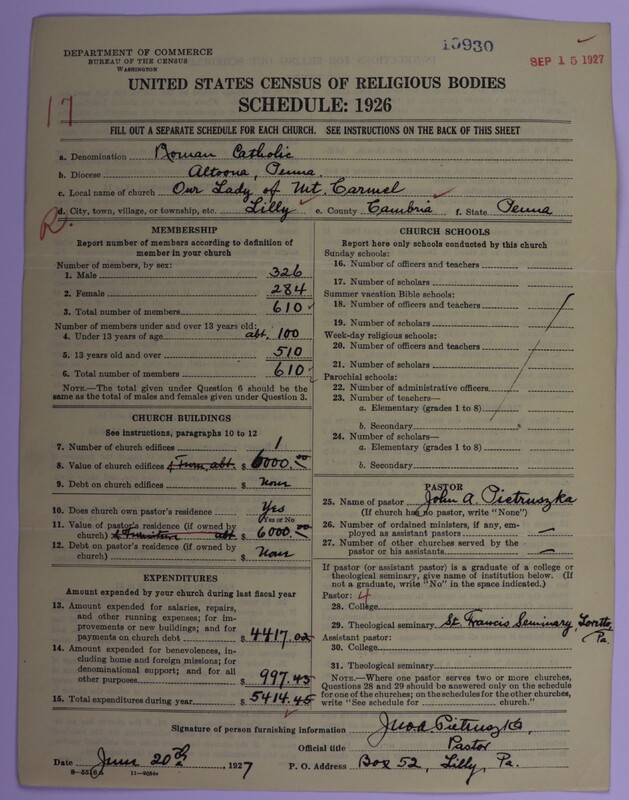 DEPARTMENT OF COMMERCE
BUREAU OF THE CENSUS
WASHINGTON
15930
SEP 15 1927
UNITED STATES CENSUS OF RELIGIOUS BODIES
SCHEDULE: 1926
17
FILL OUT A SEPARATE SCHEDULE FOR EACH CHURCH. SEE INSTRUCTIONS ON THE BACK OF THIS SHEET
a. Denomination Roman Catholic
b. Diocese Altoona, Penna.
c. Local name of church Our Lady of Mt. Carmel
d. City, town, village, or township, etc. Lilly e. County Cambria f. State Penna
R.
MEMBERSHIP
Report number of members according to definition of member in your church
Number of members, by sex:
1. Male 326
2. Female 284
3. Total number of members 610
Number of members under and over 13 years old:
4. Under 13 years of age abt. 100
5. 13 years old and over 510
6. Total number of members 610
NOTE.—The total given under Question 6 should be the same as the total of males and females given under Question 3.
CHURCH BUILDINGS
See instructions, paragraphs 10 to 12
7. Number of church edifices 1
8. Value of church edifices & Furn. abt. $ 6000.00
9. Debt on church edifices $ None
10. Does church own pastor's residence Yes
(Yes or No)
11. Value of pastor's residence (if owned by church) & Furniture abt. $ 6000.00
12. Debt on pastor's residence (if owned by church) $ None
EXPENDITURES
Amount expended by your church during last fiscal year
13. Amount expended for salaries, repairs, and other running expenses; for improvements or new buildings; and for payments on church debt $ 4417.02
14. Amount expended for benevolences, including home and foreign missions; for denominational support; and for all other purposes $ 997.43
15. Total expenditures during year $ 5414.45
CHURCH SCHOOLS
Report here only schools conducted by this church
Sunday schools:
16. Number of officers and teachers
17. Number of scholars
Summer vacation Bible schools:
18. Number of officers and teachers
19. Number of scholars
Week-day religious schools:
20. Number of officers and teachers
21. Number of scholars
Parochial schools:
22. Number of administrative officers
23. Number of teachers—
a. Elementary (grades 1 to 8)
b. Secondary
24. Number of scholars—
a. Elementary (grades 1 to 8)
b. Secondary
PASTOR
25. Name of pastor John A. Pietruszka
(If church has no pastor, write "None")
26. Number of ordained ministers, if any, employed as assistant pastors —
27. Number of other churches served by the pastor or his assistants —
If pastor (or assistant pastor) is a graduate of a college or theological seminary, give name of institution below. (If not a graduate, write "No" in the space indicated.)
Pastor: 4
28. College
29. Theological seminary St. Francis Seminary Loretto, Pa.
Assistant pastor:
30. College
31. Theological seminary
NOTE.—Where one pastor serves two or more churches, Questions 28 and 29 should be answered only on the schedule for one of the churches; on the schedules for the other churches, write "See schedule for church."
Signature of person furnishing information Jno. A. Pietruszka,
Official title Pastor
Date June 20th, 1927 P. O. Address Box 52, Lilly, Pa.